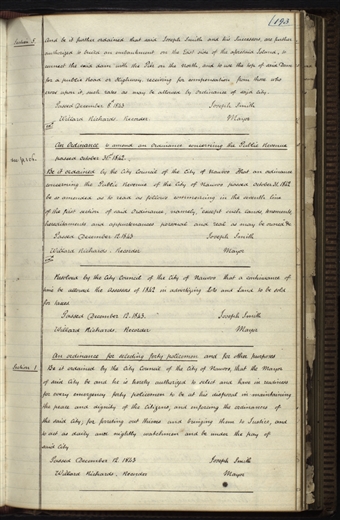 193
Section 5. And be it further ordained that said Joseph Smith and his Successors, are further
authorized to build an embankment on the East side of the aforesaid Island, to
connect the said dam with the on the north, and to use the top of said Dam
for a public Road or Highway, receiving for compensation, from those who
cross upon it, such rates as may be allowed by Ordinance of said city.
Passed December 8. 1843 Joseph Smith
Willard Richards. Recorder Mayor
An Ordinance to amend an Ordinance concerning the Public Revenue
passed October 31st 1842.
Be it ordained by the City Council of the City of Nauvoo That an ordinance
concerning the Public Revenue of the City of Nauvoo passed October 31. 1842
be so amended as to read as follows commencing in the seventh line
of the first section of said Ordinance, namely, "except such Lands, tenements,
hereditaments and appurtenances personal and real as may be owned
Passed December 12. 1843 Joseph Smith
Willard Richards. Recorder Mayor
Resolved by the City Council of the City of Nauvoo that a continuance of
time be allowed the Assessors of 1842 in advertizing Lots and Land to be sold
for taxes
Passed December 12. 1843. Joseph Smith
Willard Richards Recorder Mayor
An ordinance for selecting forty policemen and for other purposes
Section 1. Be it ordained by the City Council of the City of Nauvoo, that the Mayor
of said City be and he is hereby authorized to select and have in readiness
for every emergency forty policemen to be at his disposal in maintaining
the peace and dignity of the Citizens, and enforcing the ordinances of
the said city, for ferreting out thieves and bringing them to Justice, and
to act as daily and nightly watchmen and be under the pay of
said City
Passed December 12 1843 Joseph Smith
Willard Richards, Recorder Mayor